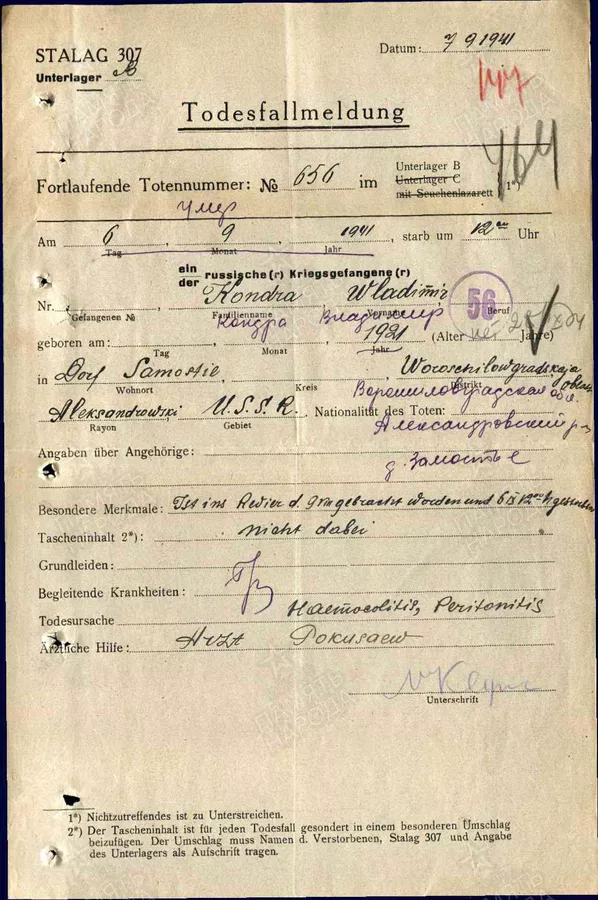 STALAG 307
Datum: 7 9 1941
Unterlager B
Todesfallmeldung
Fortlaufende Totennummer: № 656 im
Unterlager B
Unterlager C
mit Seuchenlazarett
1*)
764
умер
Am 6 9 1941, starb um 12 00 Uhr
Tag Monat Jahr
ein
der russische(r) Kriegsgefangene(r)
Nr. Kondra Wladimir
56
Gefangenen № Familienname Vorname Beruf
Кондра Владимир
geboren am: 1921 (Alter Jahre)
Tag Monat Jahr
in Dorf Samostie, Woroschilowgradskaja
Wohnort Kreis Distrikt
Ворошиловградская обл.
Aleksandrowski U.S.S.R. Nationalität des Toten:
Rayon Gebiet
Александровский р-н
Angaben über Angehörige:
д. Замостье
Besondere Merkmale: Ist ins Revier d. gebracht worden und 6 IX 12 00 h gestorben
Tascheninhalt 2*): nicht dabei
Grundleiden:
Begleitende Krankheiten:
Haemocolitis, Peritonitis
Todesursache
Ärztliche Hilfe: Arzt Pokusaew
Unterschrift
1*) Nichtzutreffendes ist zu Unterstreichen.
2*) Der Tascheninhalt ist für jeden Todesfall gesondert in einem besonderen Umschlag
beizufügen. Der Umschlag muss Namen d. Verstorbenen, Stalag 307 und Angabe
des Unterlagers als Aufschrift tragen.